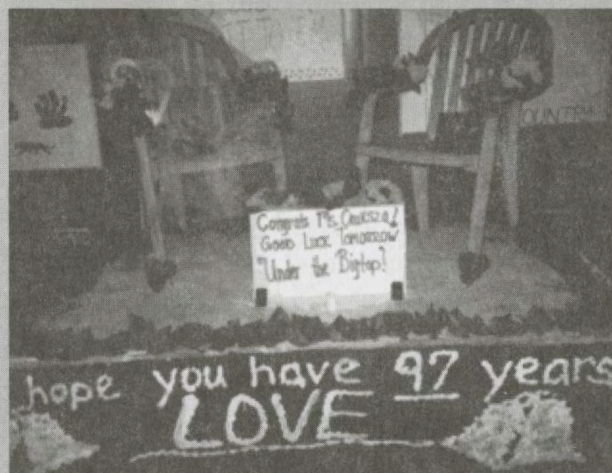 OUNTR
Congrats Ms.
Good Luck Tomorrow
"Under the Bigtop!
hope you have 97 years
LOVE